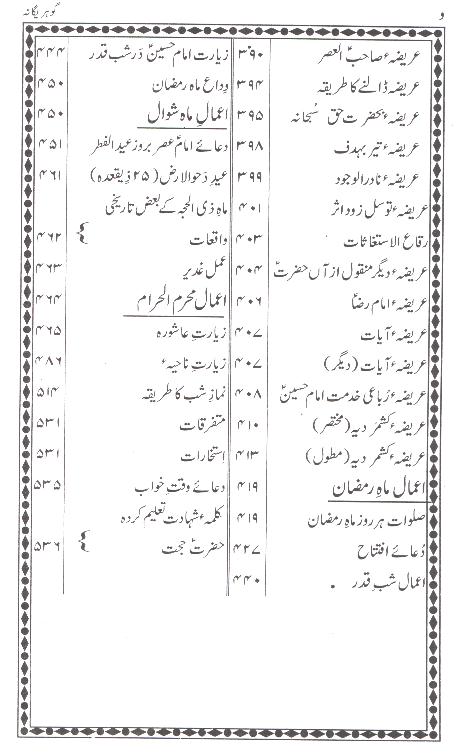 و
گوہر یگانہ
عریضہ ء صاحب العصرؑ ۳۹۰
عریضہ ڈالنے کا طریقہ ۳۹۴
عریضہ ء بحضرت حق سُبحانہ ۳۹۵
عریضہ ء تیر بہدف ۳۹۸
عریضہ ء نادر الوجود ۳۹۹
عریضہ ء توسل زود اثر ۴۰۱
رقاع الاستغاثات ۴۰۳
عریضہ ء دیگر منقول از آں حضرتؑ ۴۰۴
عریضہ ء امام رضاؑ ۴۰۶
عریضہ ء آیات ۴۰۷
عریضہ ء آیات (دیگر) ۴۰۷
عریضہ ء رُباعی خدمت امام حسینؑ ۴۰۸
عریضہ ء کشمر دیہ (مختصر) ۴۱۰
عریضہ ء کشمر دیہ (مطول) ۴۱۳
اعمال ماہِ رمضان
صلوات ہر روز ماہِ رمضان ۴۱۹
دُعائے افتتاح ۴۲۷
اعمال شبِ قدر ۴۴۰
زیارت امام حسینؑ در شب قدر ۴۴۴
وداع ماہ رمضان ۴۵۰
اعمالِ ماہِ شوال ۴۵۰
دعائے امام عصرؑ بروز عید الفطر ۴۵۱
عید دَحو الارض (۲۵ ذیقعدہ) ۴۶۱
ماہ ذی الحجہ کے بعض تاریخی
واقعات ۴۶۲
عمل غدیر ۴۶۳
اعمال محرم الحرام ۴۶۴
زیارت عاشورہ ۴۶۵
زیارتِ ناحیہ ء ۴۸۶
نماز شب کا طریقہ ۵۱۴
متفرقات ۵۳۱
استخارات ۵۳۱
دعائے وقتِ خواب ۴۱۹ ۵۳۵
کلمہ ء شہادت تعلیم کردہ
حضرتؑ حجت ۵۳۶